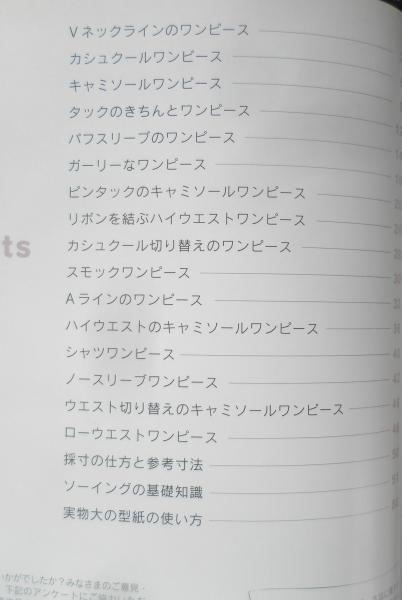 Vネックラインのワンピース
カシュクールワンピース
キャミソールワンピース
タックのきちんとワンピース 12
パフスリーブのワンピース 14
ガーリーなワンピース 16
ピンタックのキャミソールワンピース 20
リボンを結ぶハイウエストワンピース 24
ts
カシュクール切り替えのワンピース 28
スモックワンピース 30
Aラインのワンピース 32
ハイウエストのキャミソールワンピース 36
シャツワンピース 40
ノースリーブワンピース 42
ウエスト切り替えのキャミソールワンピース
ローウエストワンピース 48
採寸の仕方と参考寸法 50
ソーイングの基礎知識 51
実物大の型紙の使い方
いかがでしたか?みなさまのご意見・
下記のアンケートにご協力いただ